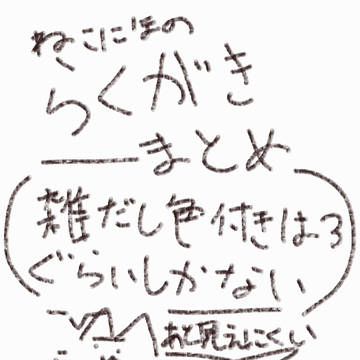 ねこにほの
らくがき
まとめ
(雑だし色付きは3
ぐらいしかない)
あと見えにくい